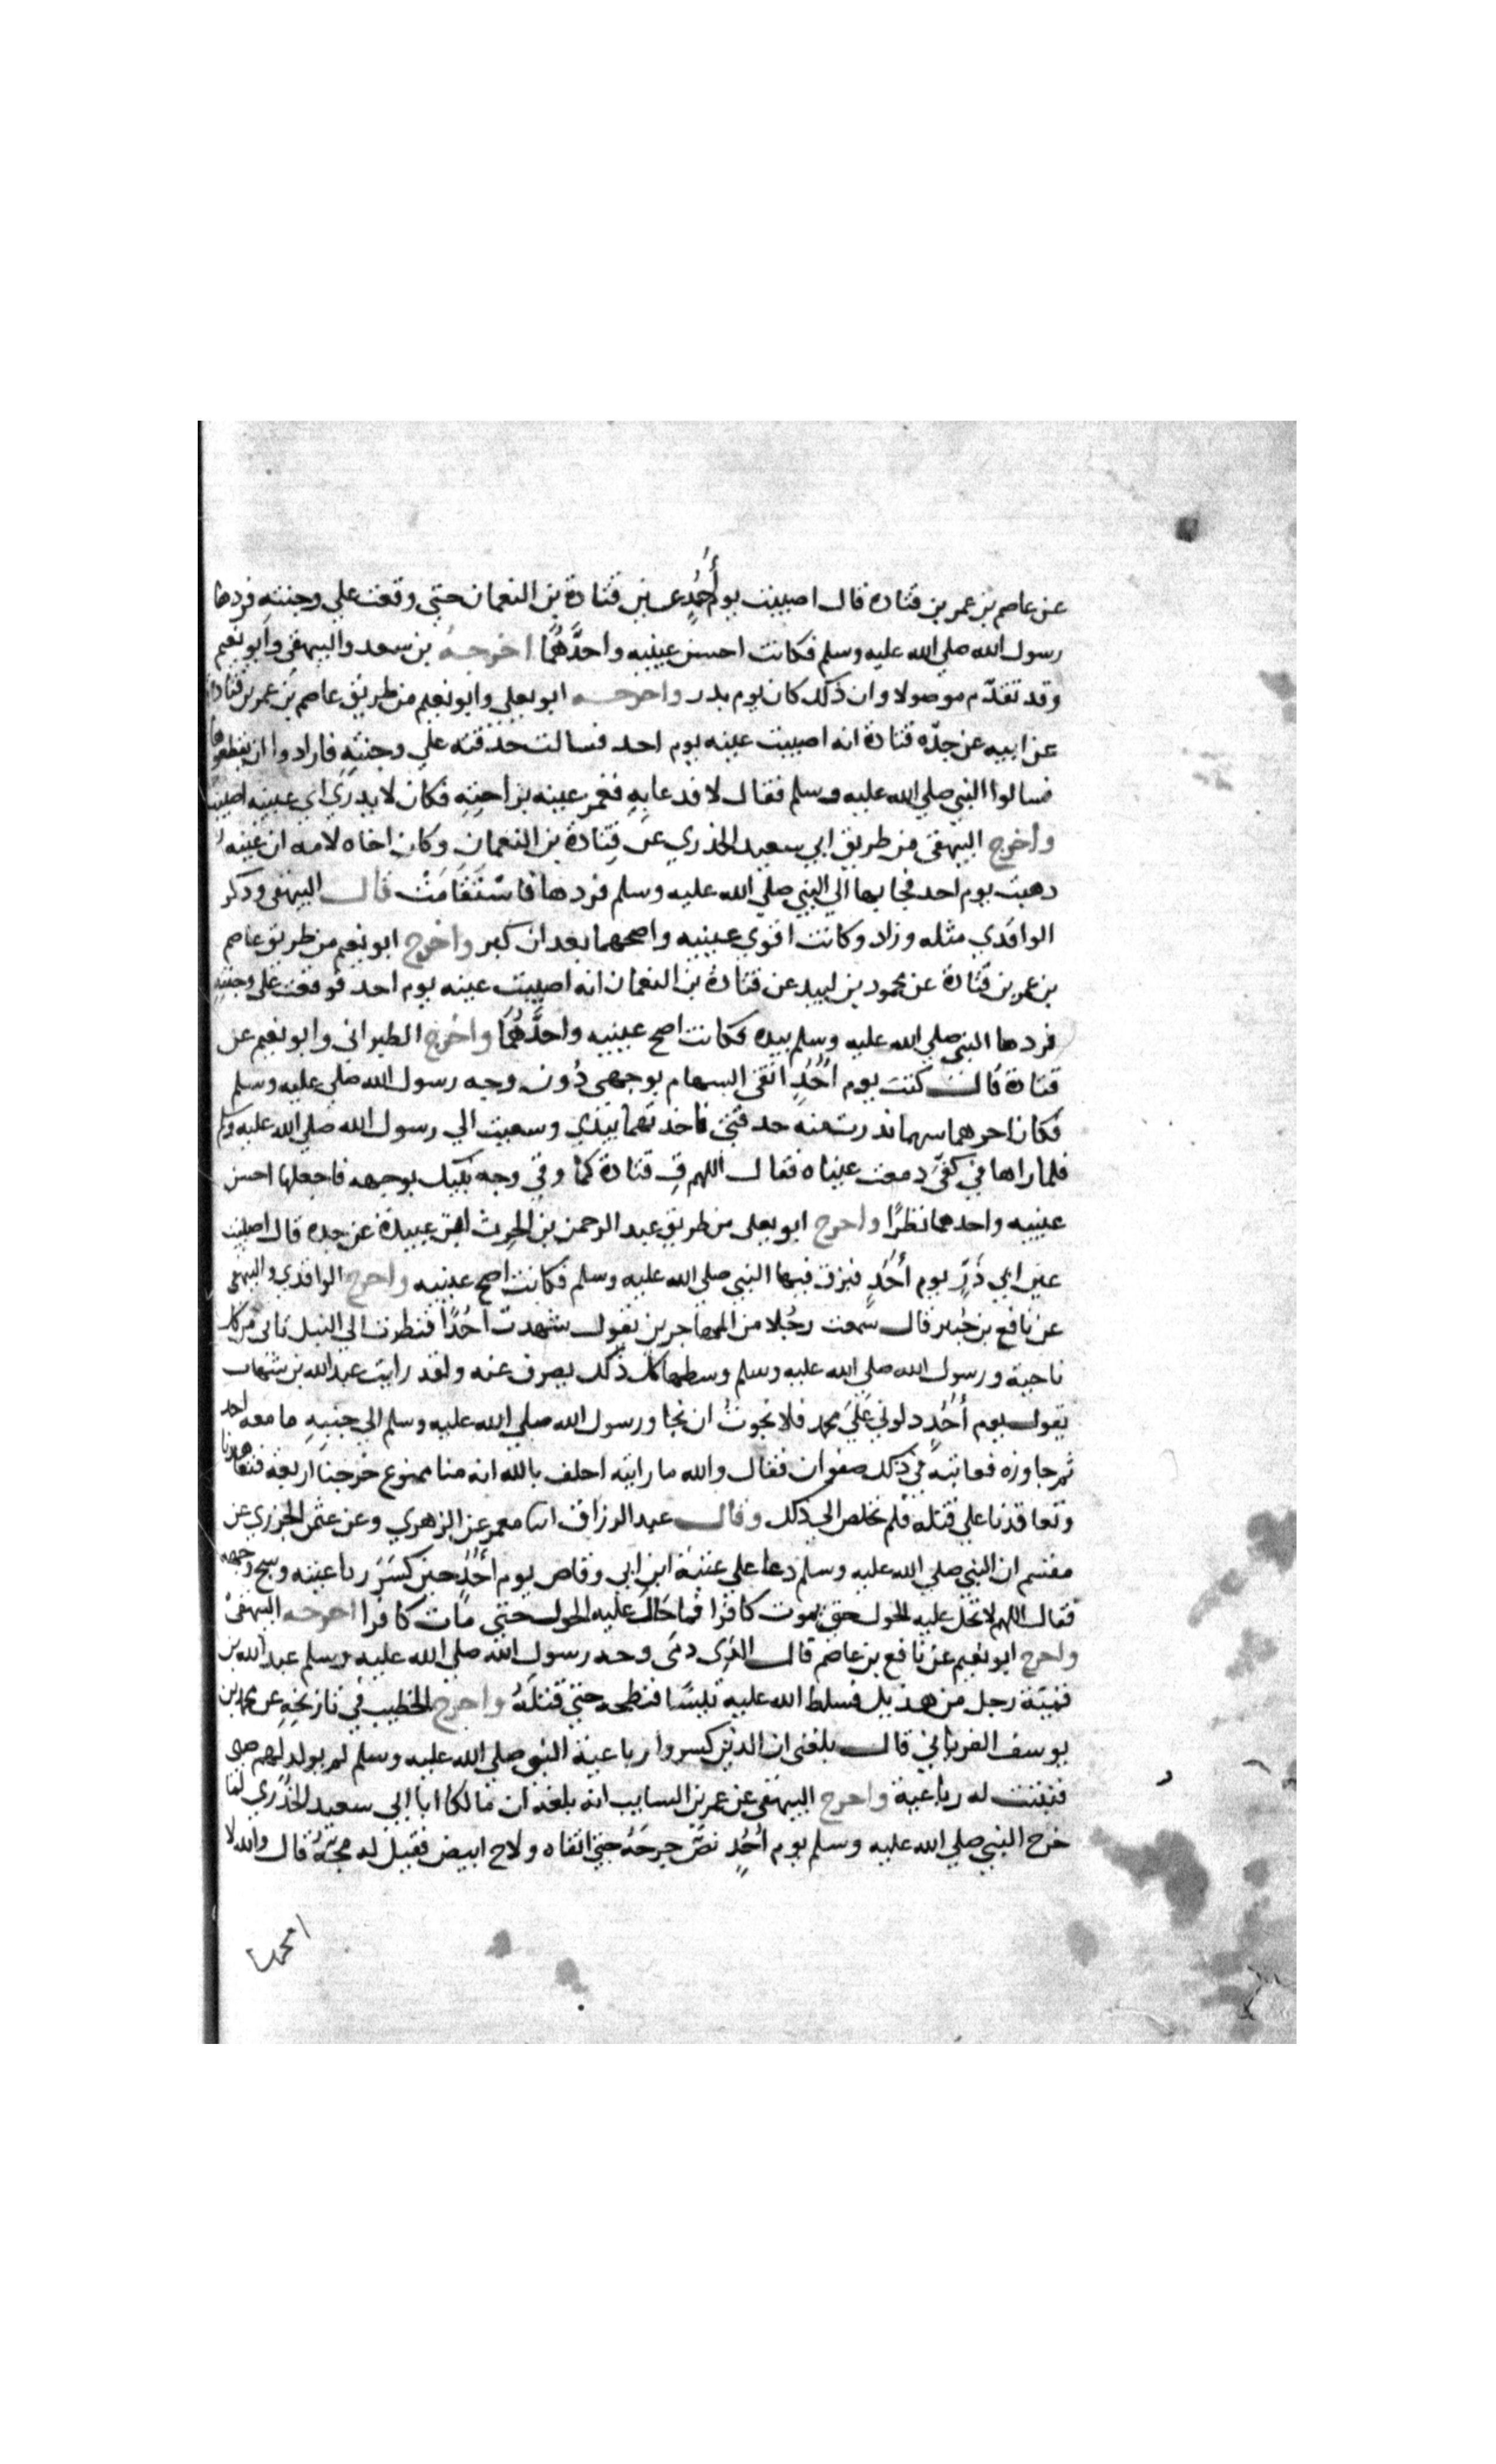 عن عاصم بن عمر بن قتادة قال اصيبت يوم أُحُدٍ عين قتادة بن النعمان حتي وقعت علي وجنتهِ فردها
رسول الله صلي الله عليه وسلم فكانت احسن عينيه واحدَّهُمَا اخرجه بن سعد والبيهقي وابو نعيم
وقد تقدّم موصولا وان ذلك كان يوم بدر واخرجه ابو يعلي وابو نعيم من طريق عاصم بن عمر بن قتادة
عن ابيه عن جدّه قتادة انه اصيبت عينه يوم احد فسالت حدقته علي وجنتهِ فارادوا ان يقطعوها
فسالوا النبي صلي الله عليه وسلم فقال لا فدعا بِهِ فغمز عينه براحتِهِ فكان لا يدري اي عينيه اصيبت
واخرج البيهقي من طريق ابي سعيد الخدري عن قتادة بن النعمان وكان اخاه لامه ان عينه
ذهبت يوم احد فجا بها الي النبي صلي الله عليه وسلم فردها فاسْتَقَامَتْ قال البيهقي وذكر
الواقدي مثله وزاد وكانت اقوي عينيه واصحهما بعد ان كبر واخرج ابو نعيم من طريق عاصم
بن عمر بن قتادة عن محمود بن لبيد عن قتادة بن النعمان انه اصيبت عينه يوم احد فوقعت علي وجنتِهِ
فردها النبي صلي الله عليه وسلم بيده فكانت اصح عينيه واحدَّهُمَا واخرج الطبراني وابو نعيم عن
قتادة قال كنت يوم أُحُدٍ اتقي السهام بوجهي دُون وجه رسول الله صلي عليه وسلم
فكان اخرهما سهما ندرت منه حدقتي فاخذتها بيدي وسعيت الي رسول الله صلي الله عليه وسلم
فلما راها في كفيّ دمعت عيناه فقال اللهم قِ قتادة كما وقي وجه نبيك بوجهه فاجعلها احسن
عينيه واحدهما نظرًا واخرج ابو يعلي من طريق عبد الرحمن بن الحرث ابن عبيدة عن جده قال اصيبت
عين ابي ذَرٍّ يوم أُحُدٍ فبزق فيها النبي صلي الله عليه وسلم فكانت اصح عينيه واخرج الواقدي والبيهقي
عن نافع بن جُبير قال سمعت رجُلا من المهاجرين يقول شهدت أُحُدًا فنظرت الي النبل تاتي من كل
ناحية ورسول الله صلي الله عليه وسلم وسطها كل ذلك يصرف عنه ولقد رايت عبد الله بن شهاب
يقول يوم أُحُدٍ دلوني عَلَيَ محمد فلا نجوتُ ان نجا ورسول الله صلي الله عليه وسلم الي جنبِهِ ما معه احد
ثم جاوزه فعاتبه في ذلك صفوان فقال والله ما رايته احلف بالله انه منا ممنوع خرجنا اربعة فتعاهدنا
وتعاقدنا علي قتله فلم نخلص الي ذلك وقال عبد الرزاق انا معمر عن الزهري وعن عثمن الجزري عن
مقسم ان النبي صلي الله عليه وسلم دعا علي عتبة ابن ابي وقاص يوم أُحُدٍ حين كَسَرَ رباعيته وشج وجهه
فقال اللهم لا تحل عليه الحول حتي يموت كافرا فما حَالَ عليه الحول حتي مات كافرا اخرجه البيهقي
واخرج ابو نعيم عن نافع بن عاصم قال الذي دمي وجه رسول الله صلي الله عليه وسلم عبد الله بن
قميّة رجل من هذيل فسلط الله عليه تيسًا فنطحه حتي قتلَهُ واخرج الخطيب في تاريخِهِ عن محمد بن
يوسف الفريابي قال بلغني ان الذين كسروا رباعية النبي صلي الله عليه وسلم لم يولد لهم صبي
فنبتت له رباعية واخرج البيهقي عن عمر بن السايب انه بلغه ان مالكا ابا ابي سعيد الخُدري لما
خرح النبي صلي الله عليه وسلم يوم أُحُدٍ نصّ جرحَهُ حتي انقاه ولاح ابيض فقيل له مجّهُ قال والله لا
امجه